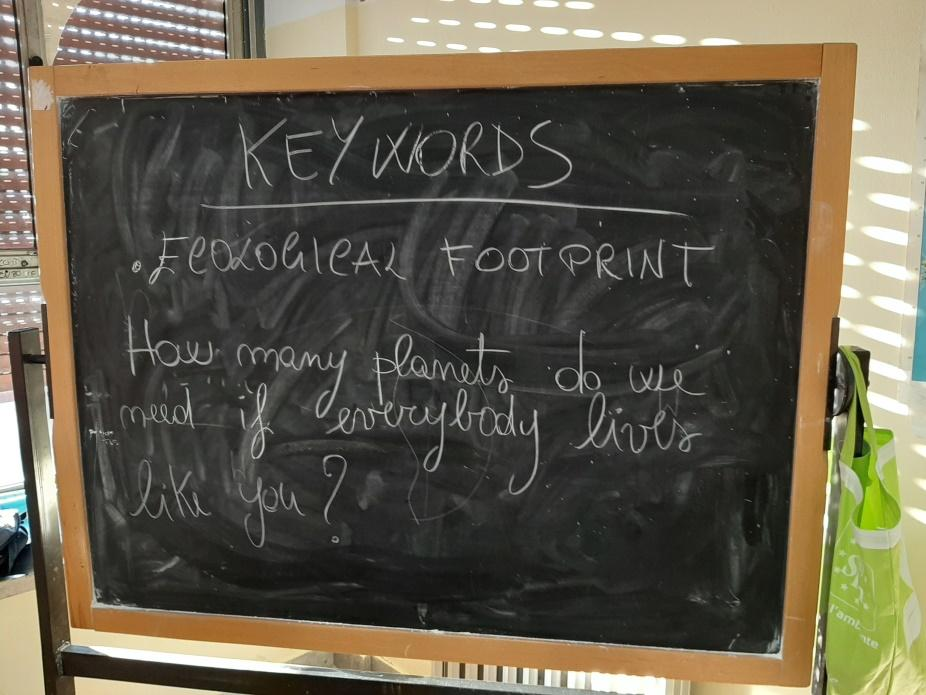 KEYWORDS
• ECOLOGICAL FOOTPRINT
How many planets do we
need if everybody lives
like you?
l'ambiente